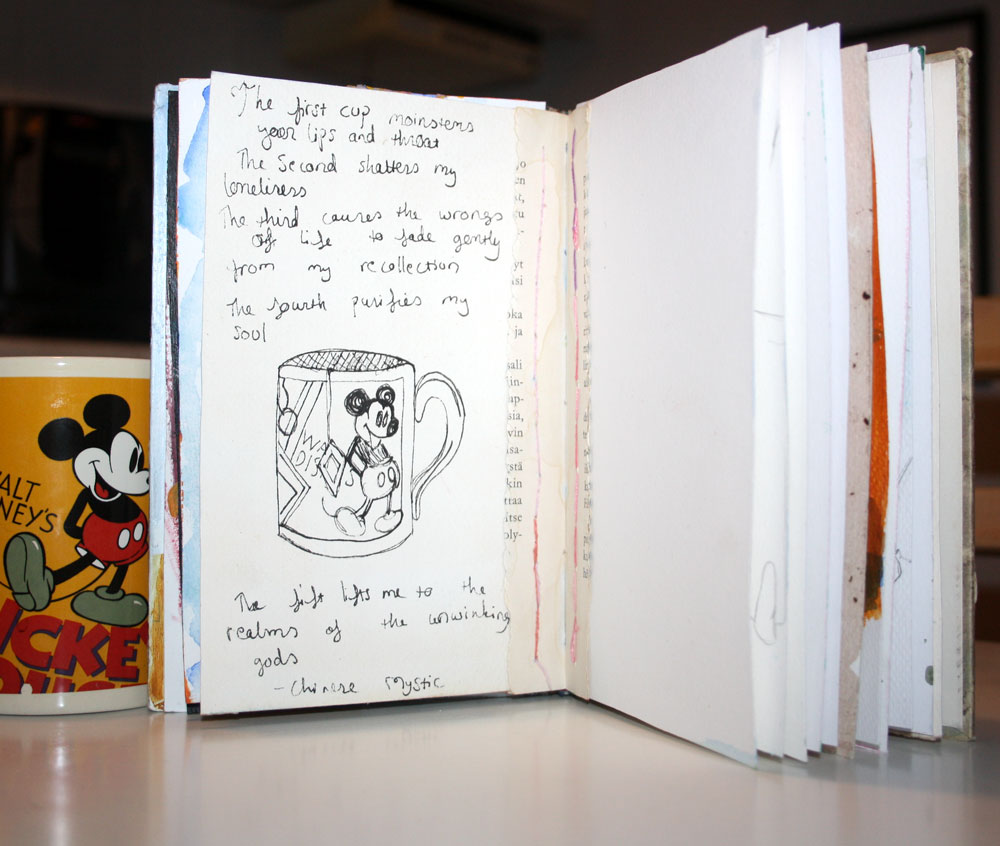 The first cup moinstens
your lips and throat
The Second shatters my
loneliness
The third causes the wrongs
of life to fade gently
from my recollection
The fourth purifies my
soul
WA
DIS
The fift lifts me to the
realms of the unwinking
gods
- Chinese Mystic
ALT
NEY'S
ICKE
en
st,
yt
oka
ja
sali
lin-
ap-
sia,
vin
isa-
stä
kin
ttaa
itse
oly-